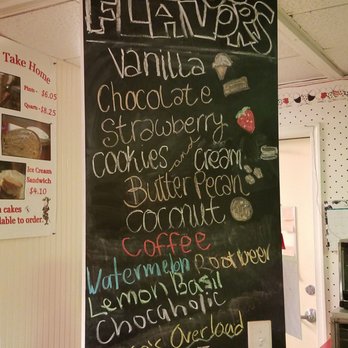 FLAVORS
Vanilla
Chocolate
Strawberry
Cookies and Cream
Butter Pecan
Coconut
Coffee
Watermelon Rootbeer
Lemon Basil
Chocaholic
Overload
Take Home
Pints - $6.05
Quarts - $8.25
Ice Cream
Sandwich
$4.10
cakes
to order.